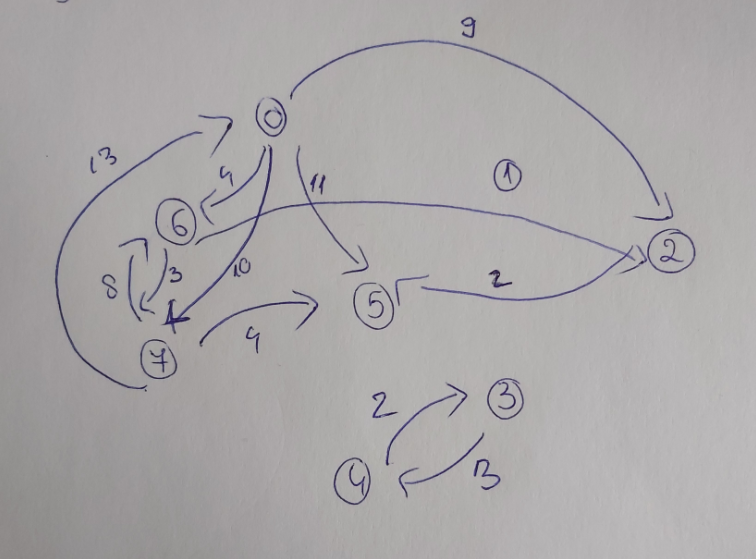 9
0
13
4
11
1
6
2
8
3
10
2
5
7
4
3
2
4
3